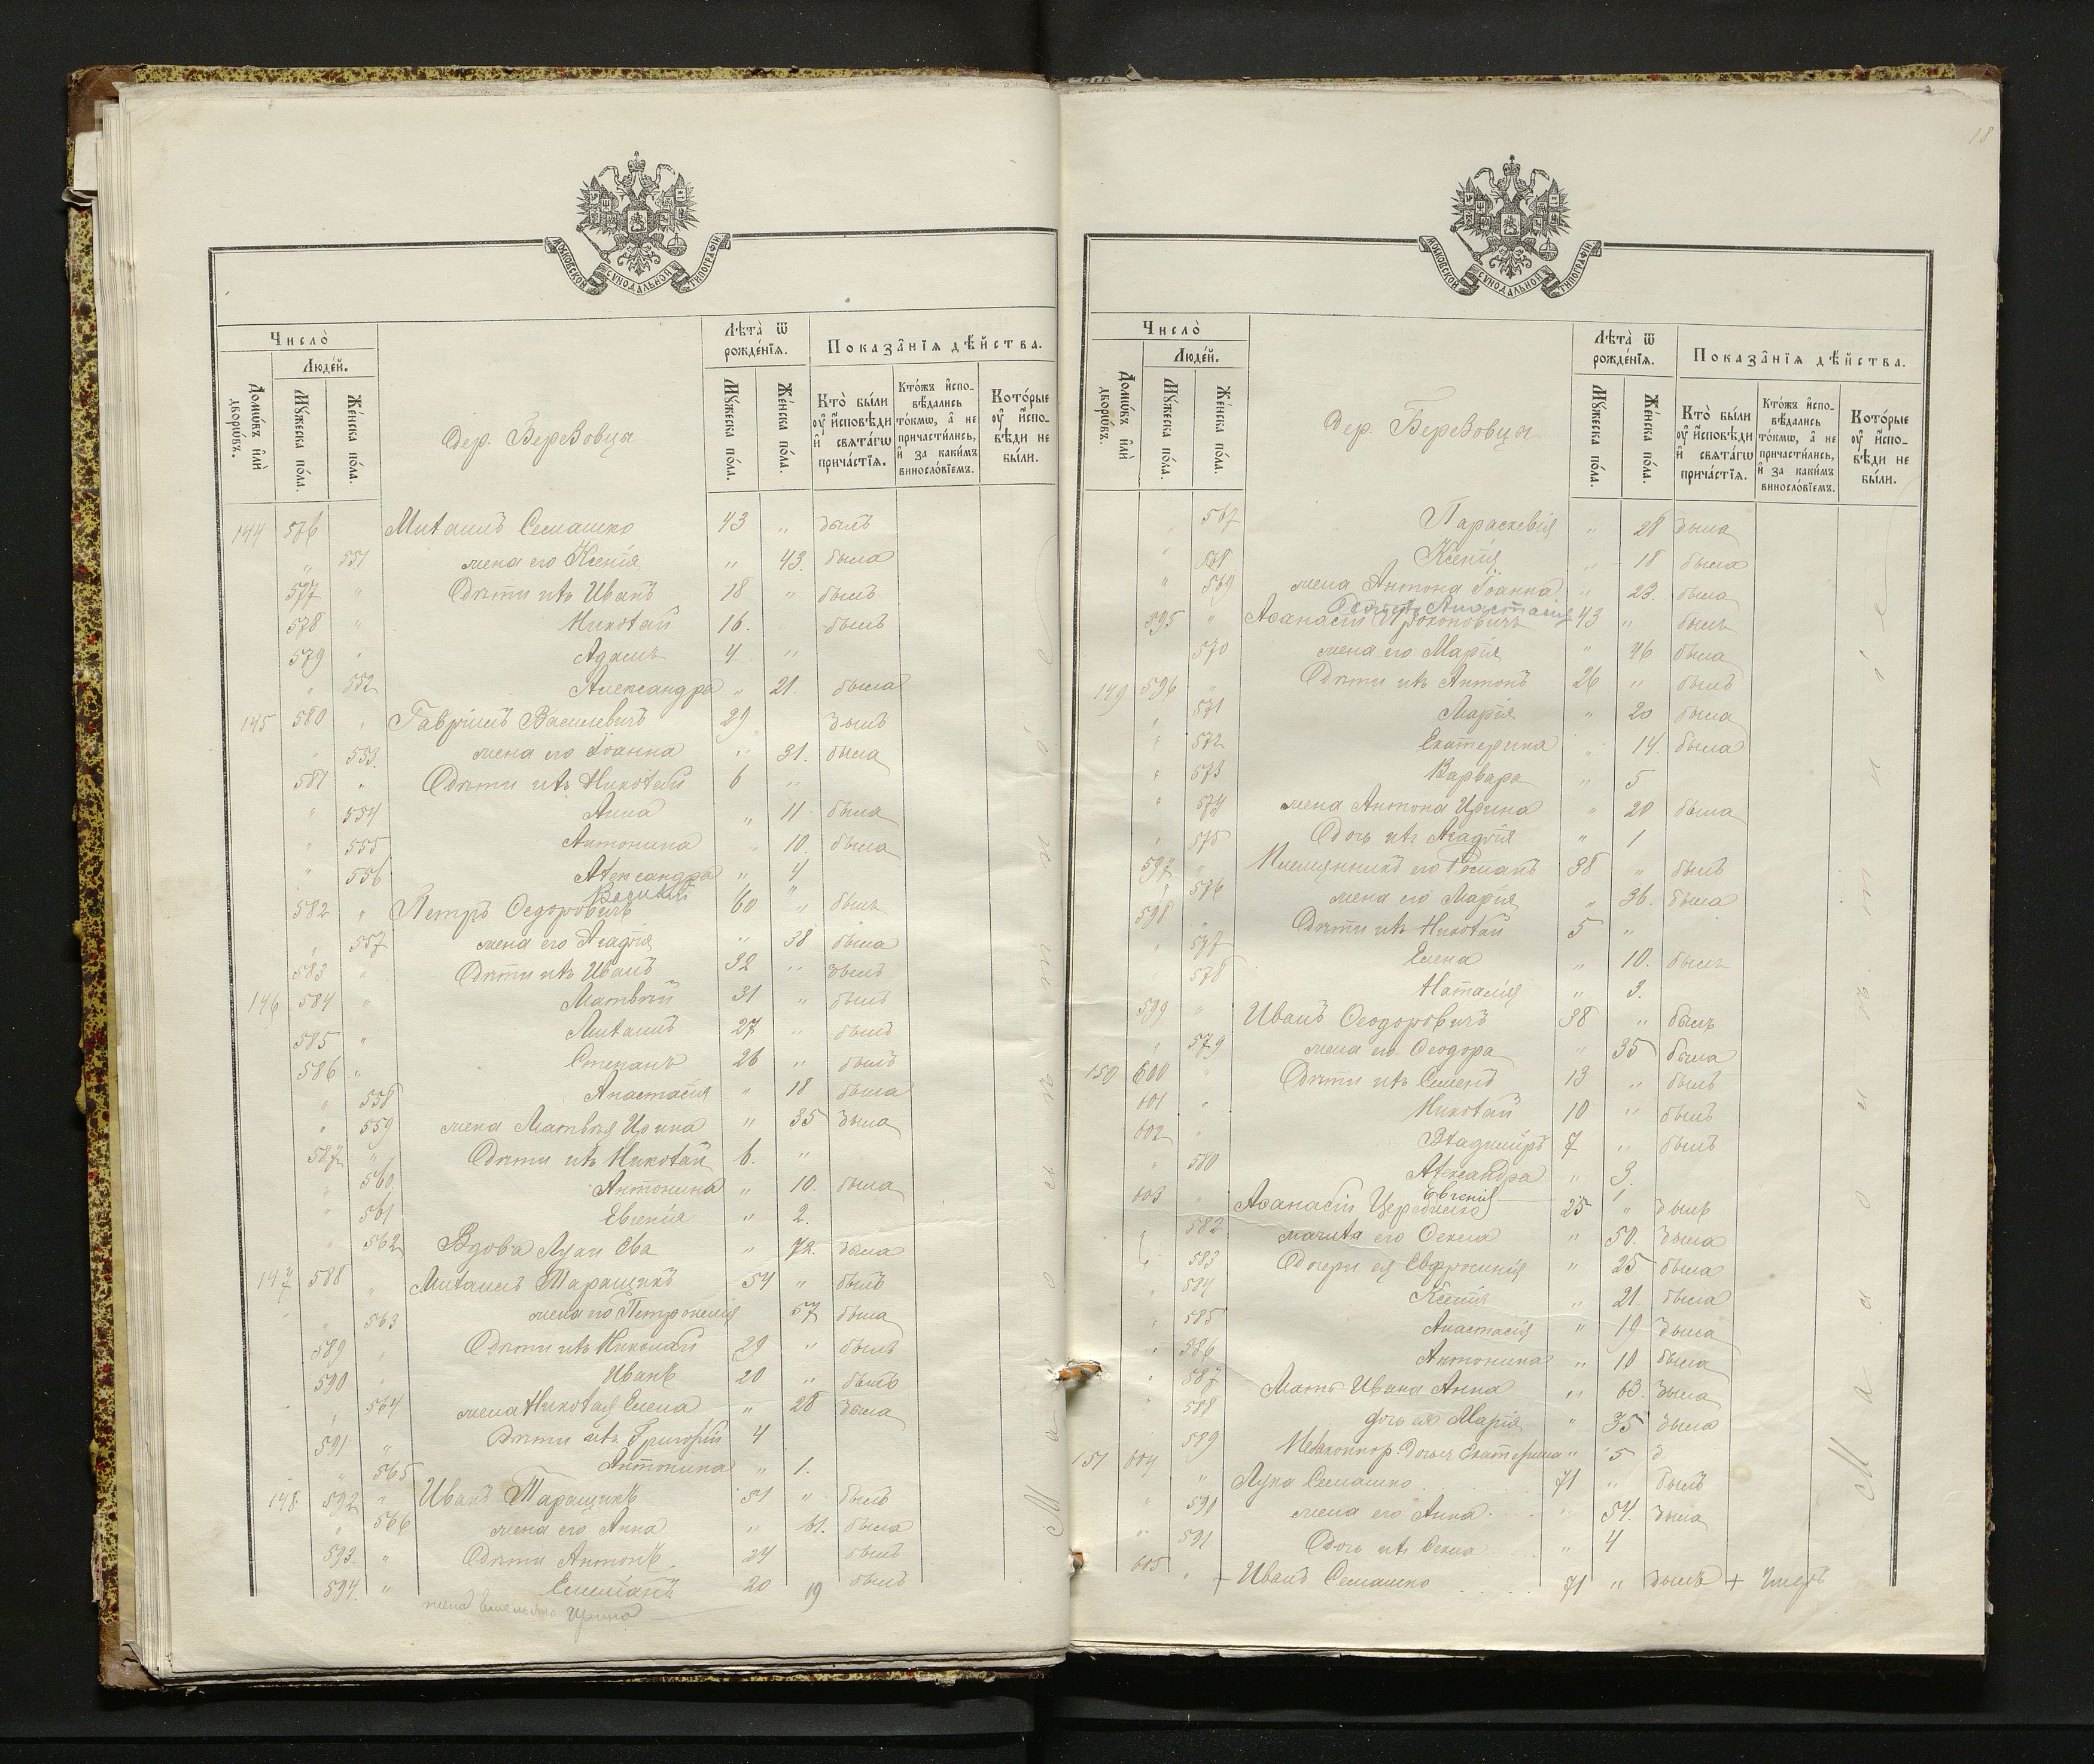 МОСКОВСКОЙ СѴНОДАЛЬНОЙ ТИПОГРАФІИ
Число̀
Люде́й.
Домѡ́въ и҆лѝ дворѡ́въ.
Мꙋ́жеска по́ла.
Же́нска по́ла.
Дер. Березовцы
Лѣта̀ ѿ рожде́нїѧ.
Мꙋ́жеска по́ла.
Же́нска по́ла.
Показа̑нїѧ дѣ́йства.
Кто̀ бы́ли оу҆ и҆сповѣ́ди и҆ свѧта́гѡ прича́стїѧ.
Кто́жъ и҆спо-
вѣ́дались то́кмѡ, а҆ не причасти́лись, и҆ за каки́мъ винословїемъ.
Кото́рые оу҆ и҆спо-
вѣ́ди не бы́ли.
144 576 Михаилъ Семашко 43 " былъ
" 551 жена его Ксенія " 43. была
577 " Дѣти ихъ Иванъ 18 " былъ
578 " Николай 16. былъ
579 " Адамъ 4 "
" 552 Александра " 21. была
145 580 " Гавріилъ Василевичъ 29 былъ
" 553. жена его Іоанна " 31. была
581 " Дѣти ихъ Николай 6 "
" 554 Анна " 11 была
" 555 Антонина " 10. была
" 556 Александра " 4
Василій
582 " Петръ Ѳедоровичъ 60 " былъ
" 557 жена его Агафія " 38 была
583 " Дѣти ихъ Иванъ 32 " былъ
146 584 " Матвѣй 31 " былъ
585 " Михаилъ 27 " былъ
586 " Степанъ 26 " былъ
" 558 Анастасія " 18 была
" 559 жена Матвѣя Ирина " 35 была
587 " Дѣти ихъ Николай 6. "
" 560 Антонина " 10. была
" 561 Евгенія " 2.
" 562 Вдова Луки Ева " 72. была
147 588 " Михаилъ Таращикъ 54 " былъ
" 563 жена его Петронелія 57 была
589 " Дѣти ихъ Николай 29 " былъ
590 " Иванъ 20 " былъ
" 564 жена Николая Елена " 28 была
591 " Дѣти ихъ Григорій 4
" 565 Антонина " 1.
148 592 " Иванъ Таращикъ 51 " былъ
" 566 жена его Анна " 61. была
593. " Дѣти Антонъ 24 былъ
594. " Емеліанъ 20 19 былъ
жена Емельяна Ирина
18
МОСКОВСКОЙ СѴНОДАЛЬНОЙ ТИПОГРАФІИ
Число̀
Люде́й.
Домѡ́въ и҆лѝ дворѡ́въ.
Мꙋ́жеска по́ла.
Же́нска по́ла.
Дер. Березовцы
Лѣта̀ ѿ рожде́нїѧ.
Мꙋ́жеска по́ла.
Же́нска по́ла.
Показа̑нїѧ дѣ́йства.
Кто̀ бы́ли оу҆ и҆сповѣ́ди и҆ свѧта́гѡ прича́стїѧ.
Кто́жъ и҆спо-
вѣ́дались то́кмѡ, а҆ не причасти́лись, и҆ за каки́мъ винословїемъ.
Кото́рые оу҆ и҆спо-
вѣ́ди не бы́ли.
" 567 Параскевія " 28 была
" 568 Ксенія " 18 была
" 569 жена Антона Іоанна " 23. была
Дочь ихъ Анастасія
595 " Аѳанасій Прокоповичъ 43 " былъ
570 жена его Марія " 46 была
149 596 " Дѣти ихъ Антонъ 26 " былъ
" 571 Марія " 20 была
" 572 Екатерина " 14. была
" 573 Варвара " 5
" 574 жена Антона Ирина " 20 была
" 575 Дочь ихъ Агафія " 1
597 " Племянникъ его Романъ 38 " былъ
" 576 жена его Марія " 36. была
598 " Дѣти ихъ Николай 5 "
" 577 Елена " 10. былъ
" 578 Наталія " 3.
599 " Иванъ Ѳеодоровичъ 38 " былъ
" 579 жена его Ѳеодора " 35 была
150 600 " Дѣти ихъ Семенъ 13 " былъ
601 " Николай 10 " былъ
602 " Владиміръ 7 " былъ
" 580 Александра " 3.
Евгенія 1
603 " Аѳанасій 25 " былъ
" 582 мачиха его Ѳекла " 50. была
" 583 Дочери ея Евфросинія " 25 была
" 584 Ксенія " 21. была
" 585 Анастасія " 19 была
" 586 Антонина " 10 была
" 587 Мать Ивана Анна " 63. была
" 588 дочь ея Марія " 35 была
" 589 Незаконнор. дочь ея Екатерина " 5 б.
151 604 " Лука Семашко 71 " былъ
" 590 жена его Анна " 54. была
" 591 Дочь ихъ Ѳекла " 4
605 " + Иванъ Семашко 71 " былъ + Умеръ